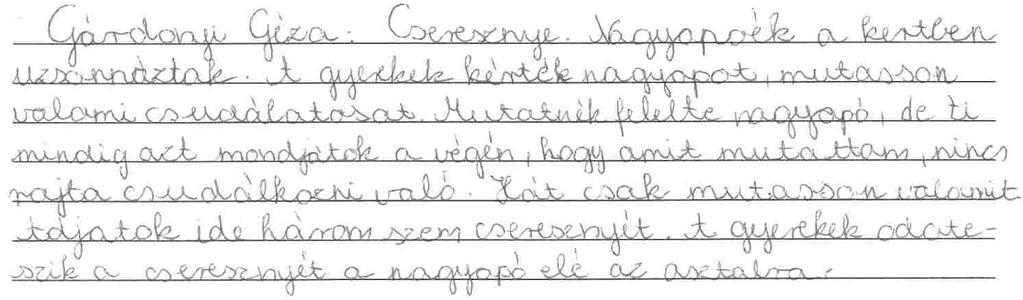 Gárdonyi Géza: Cseresznye. Nagyapoék a kertben
uzsonnáztak. A gyerekek kérték nagyapot, mutasson
valami csudálatosat. Mutatnék felelte nagyapó, de ti
mindig azt mondjátok a végén, hogy amit mutattam, nincs
rajta csudálkozni való. Hát csak mutasson valamit
Adjatok ide három szem cseresznyét. A gyerekek odate-
szik a cseresznyét a nagyapó elé az asztalra.